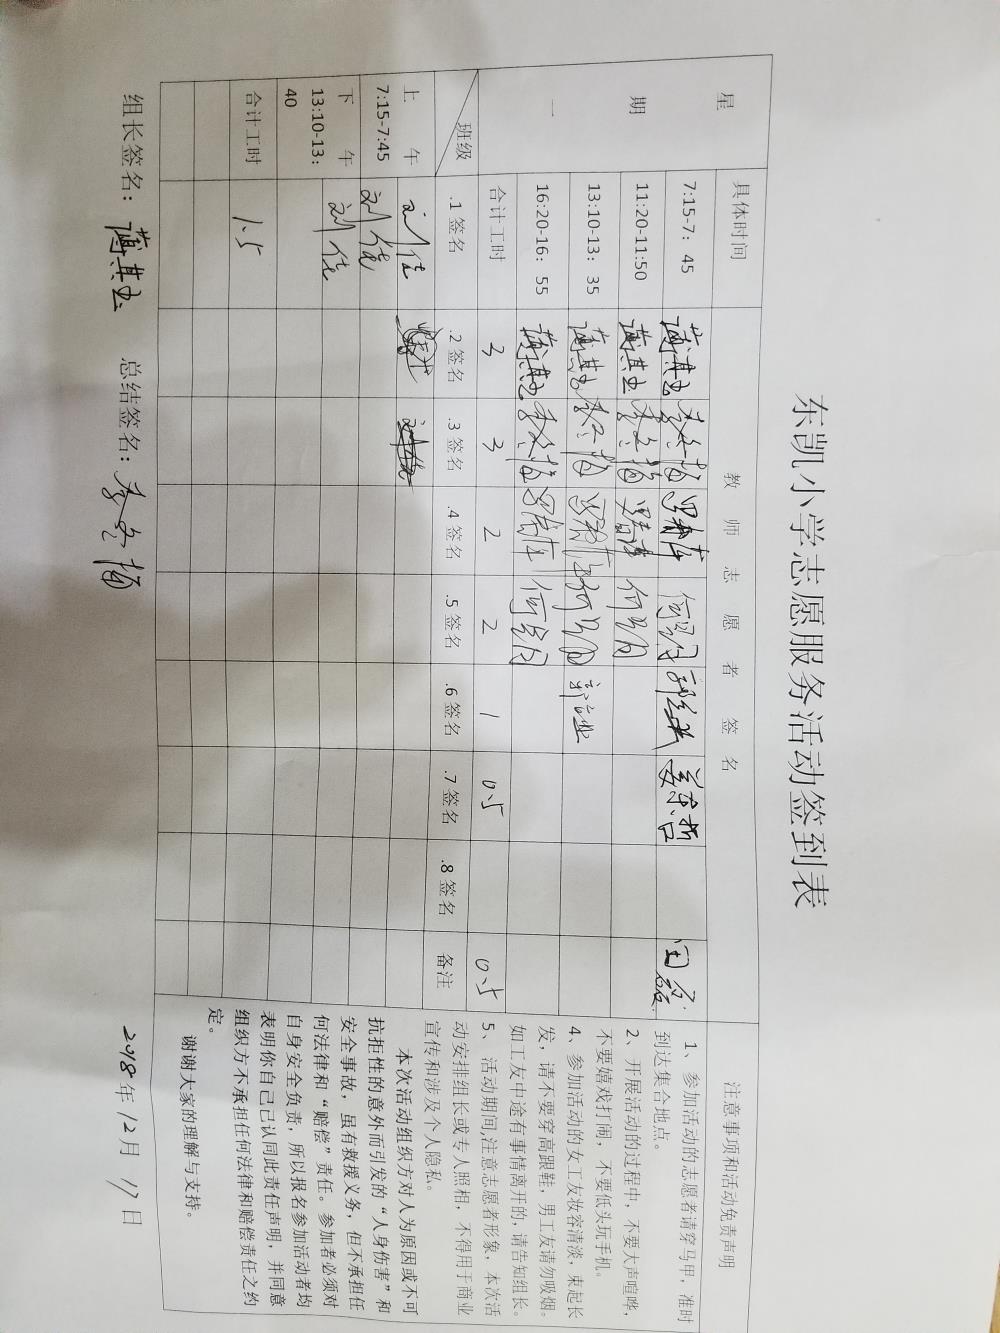 东凯小学志愿服务活动签到表
星期一
具体时间
教师志愿者签名
注意事项和活动免责声明
7:15-7：45
11:20-11:50
13:10-13：35
16:20-16：55
合计工时 3 3 2 2 1 0.5 0.5
班级 .1签名 .2签名 .3签名 .4签名 .5签名 .6签名 .7签名 .8签名 备注
上午
7:15-7:45
下午
13:10-13：
40
合计工时 1.5
1、参加活动的志愿者请穿马甲，准时
到达集合地点。
2、开展活动的过程中，不要大声喧哗，
不要嬉戏打闹，不要低头玩手机。
4、参加活动的女工友妆容清淡，束起长
发，请不要穿高跟鞋，男工友请勿吸烟。
如工友中途有事情离开的，请告知组长。
5、活动期间,注意志愿者形象，本次活
动安排组长或专人照相，不得用于商业
宣传和涉及个人隐私。
本次活动组织方对人为原因或不可
抗拒性的意外而引发的“人身伤害”和
安全事故，虽有救援义务，但不承担任
何法律和“赔偿”责任。参加者必须对
自身安全负责，所以报名参加活动者均
表明你自己已认同此责任声明，并同意
组织方不承担任何法律和赔偿责任之约
定。
谢谢大家的理解与支持。
组长签名： 总结签名： 2018年12月17日